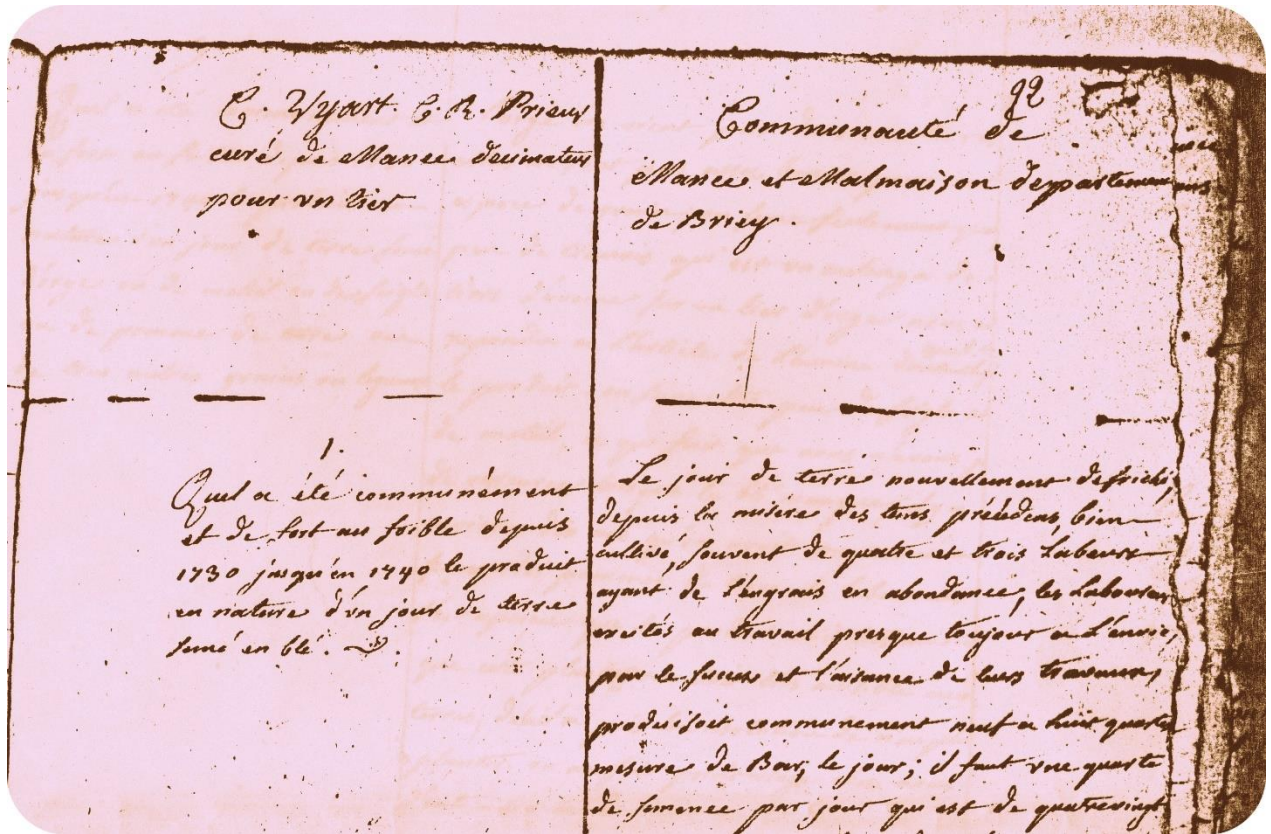 C. Vyart C. R. Prieur
curé de Mance decimateur
pour un tier
92
Communauté de
Mance et Malmaison departement
de Briey.
1.
Quel a été communément
et de fort au foible depuis
1730 jusqu'en 1740 le produit
en nature d'un jour de terre
semé en blé.
Le jour de terre nouvellement defriché,
depuis la misère des tems précédens, bien
cultivé, souvent de quatre et trois Labours
ayant de l'engrais en abondance, les Laboureurs
excités au travail presque toujour a L'envie,
par le succes et l'aisance de leurs travaux,
produisoit communement neuf a huit quartes
mesure de Bar, le jour; il faut une quarte
de semence par jour qui est de quatrevingt